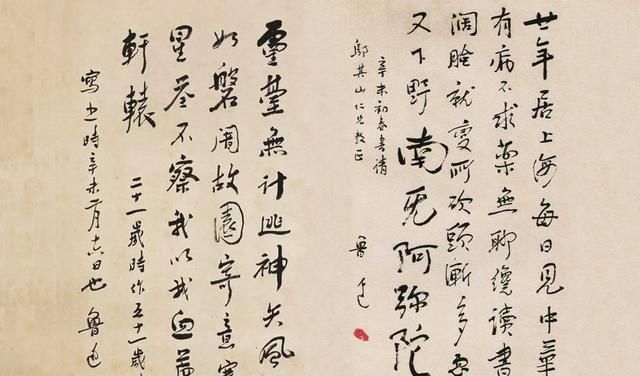 廿年居上海每日見中華
有病不求藥無聊纔讀書
濶臉就變所砍頭漸多忽
又下野南无阿弥陀
辛未初春書請
鄔其山仁兄教正
魯迅
靈臺無計逃神矢風
如磐闇故園寄意寒
星荃不察我以我血薦
軒轅
二十一歲時作五十一歲
寫之時辛未二月十六日也 魯迅